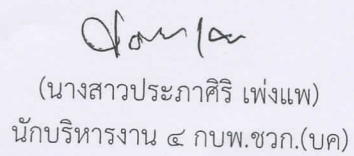 (นางสาวประภาศิริ เพ่งแพ)
นักบริหารงาน ๔ กบพ.ชวก.(บค)